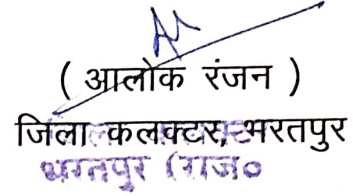 ( आलोक रंजन )
जिला कलक्टर, भरतपुर
भरतपुर (राज०